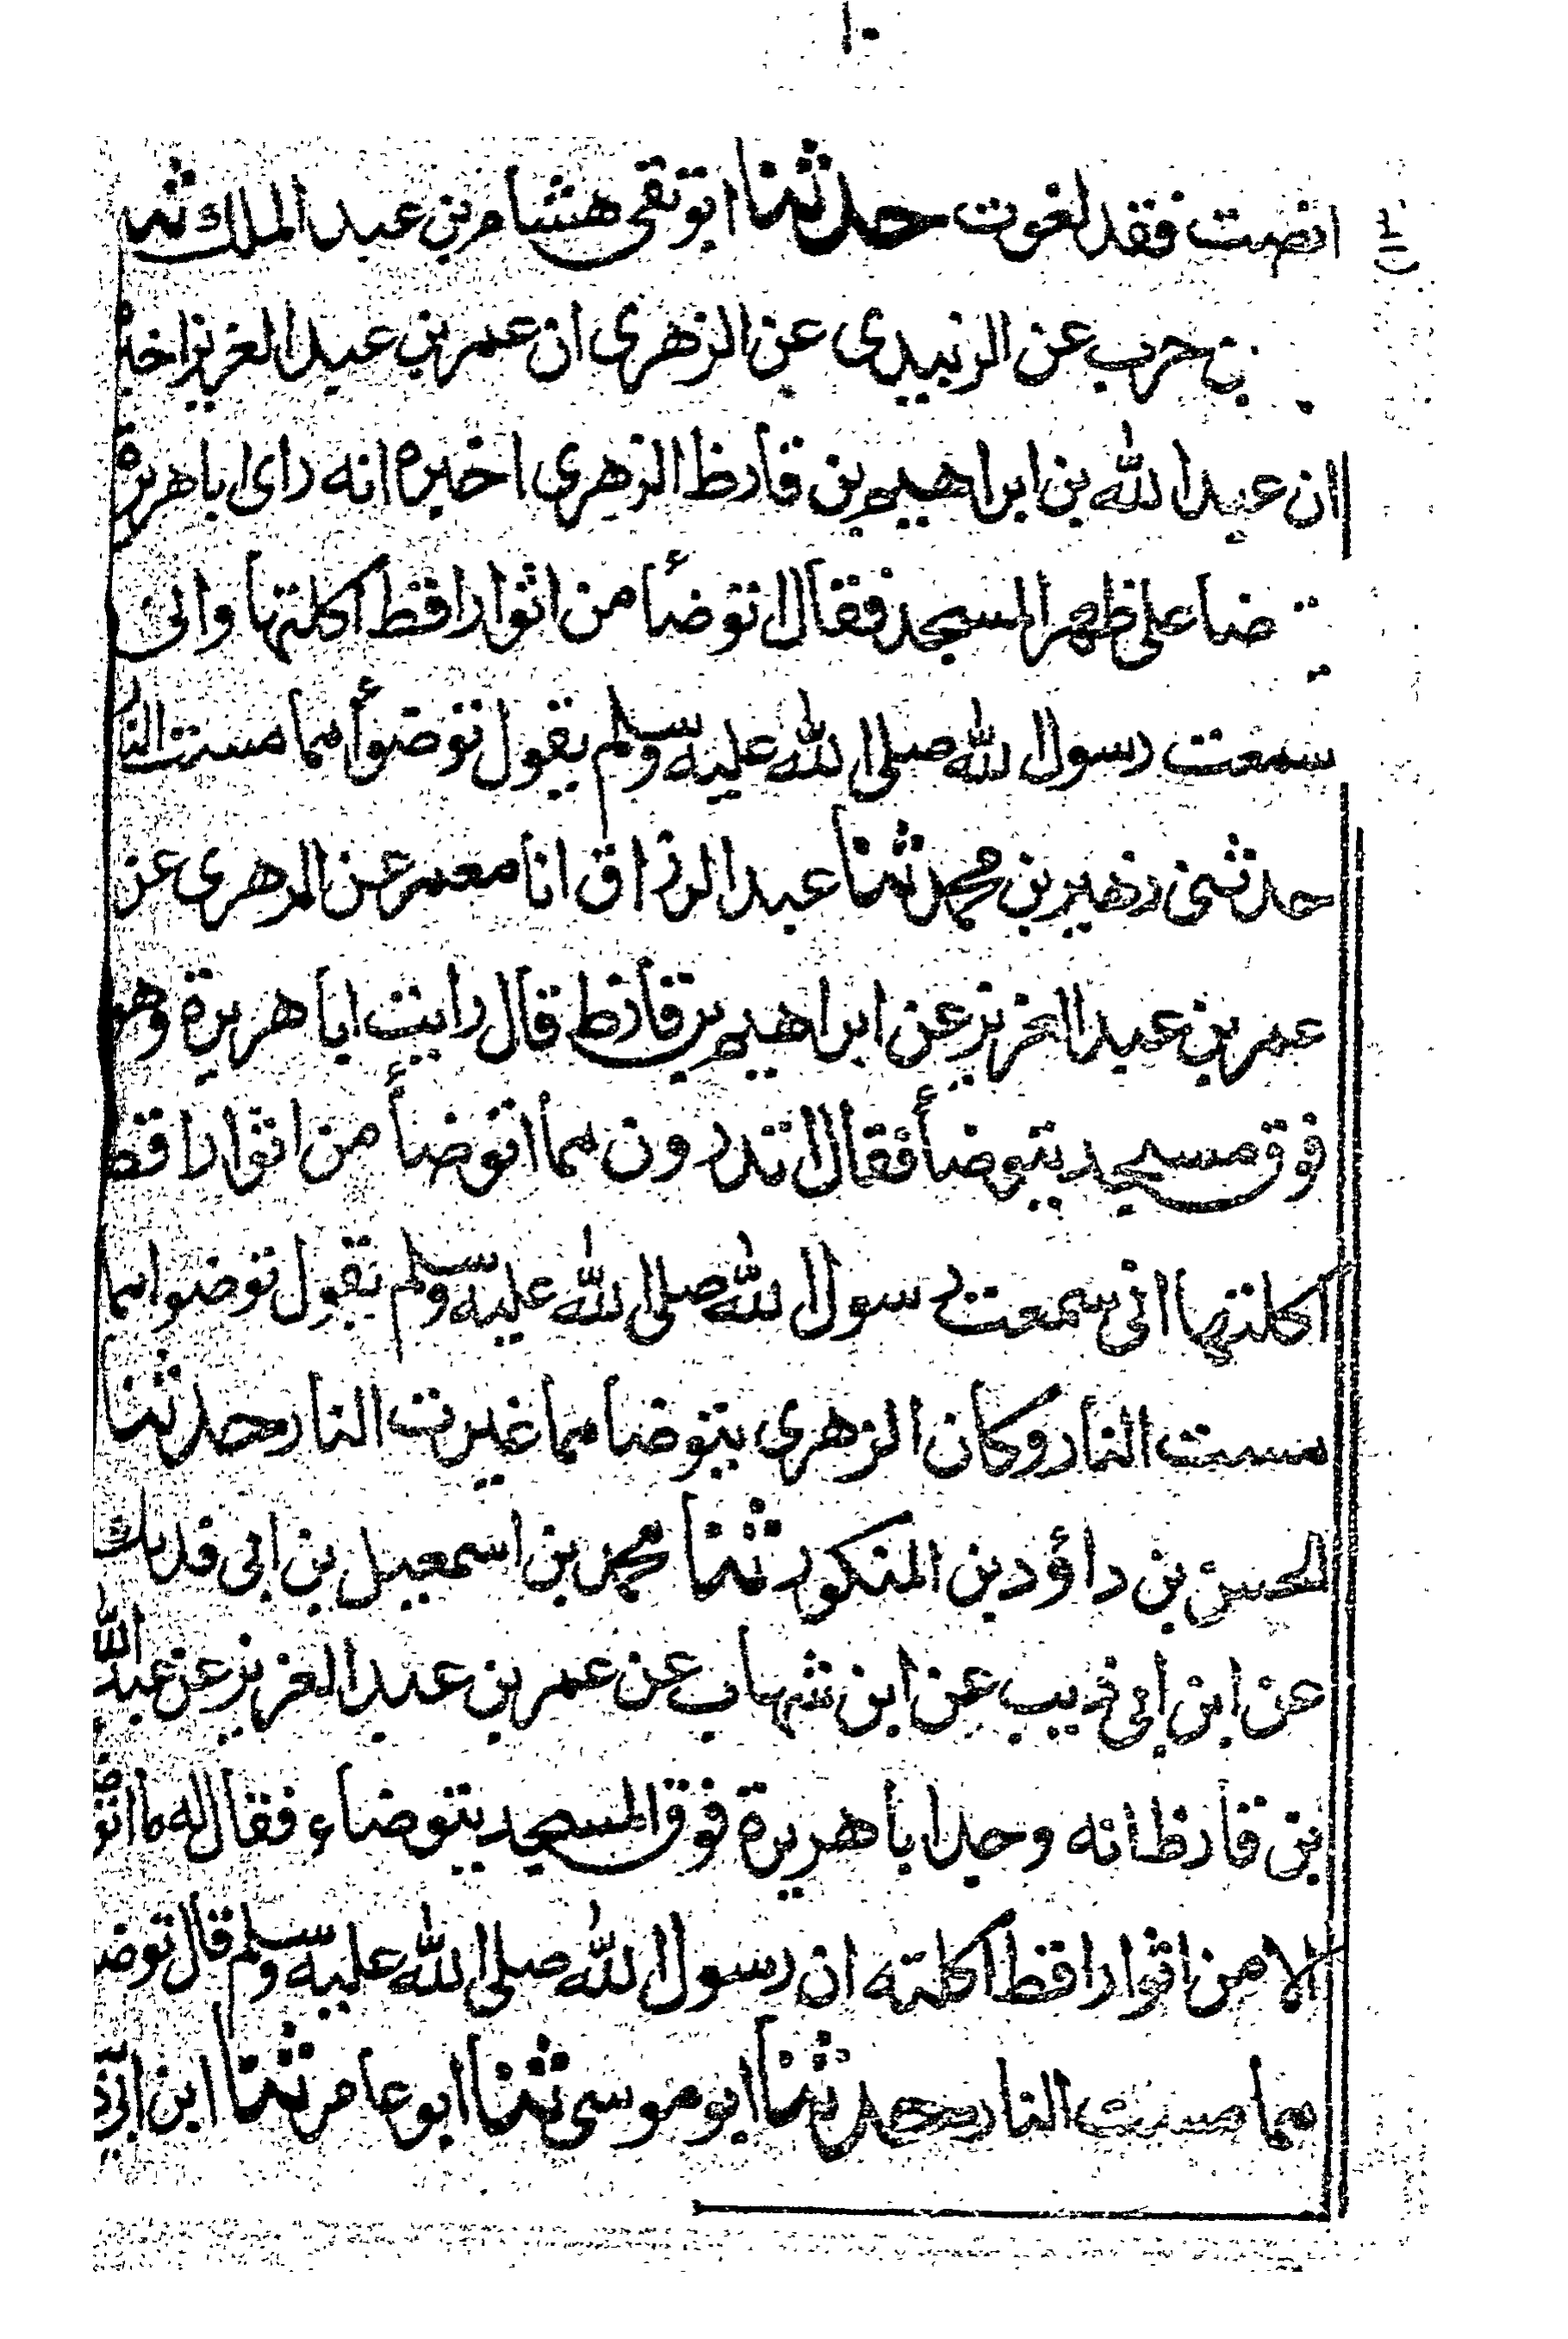 ١٠
انصت فقد لغوت حدثنا ابو تقى هشام بن عبد الملك ثنا
بن حرب عن الزبيدى عن الزهرى ان عمر بن عبد العزيز اخبره
ان عبد الله بن ابراهيم بن قارظ الزهرى اخبره انه راى ابا هريرة
ضا على ظهر المسجد فقال اتوضأ من اثوار اقط اكلتها وانى
سمعت رسول الله صلى الله عليه وسلم يقول توضوأ مما مست النار
حدثنى زهير بن محمد ثنا عبد الرزاق انا معمر عن الزهرى عن
عمر بن عبد العزيز عن ابراهيم بن قارظ قال رايت ابا هريرة وهو
فوق مسجد يتوضأ فقال اتدرون مما اتوضأ من اثوار اقط
اكلتها انى سمعت رسول الله صلى الله عليه وسلم يقول توضوا مما
مست النار وكان الزهرى يتوضا مما غيرت النار حدثنا
الحسن بن داؤد بن المنكدر ثنا محمد بن اسمعيل بن ابى فديك
عن ابن ابى ذيب عن ابن شهاب عن عمر بن عبد العزيز عن عبد الله
بن قارظ انه وجد ابا هريرة فوق المسجد يتوضاء فقال له ما اتوضا
الا من اثوار اقط اكلته ان رسول الله صلى الله عليه وسلم قال توضوا
مما مست النار حدثنا ابو موسى ثنا ابو عامر ثنا ابن ابى